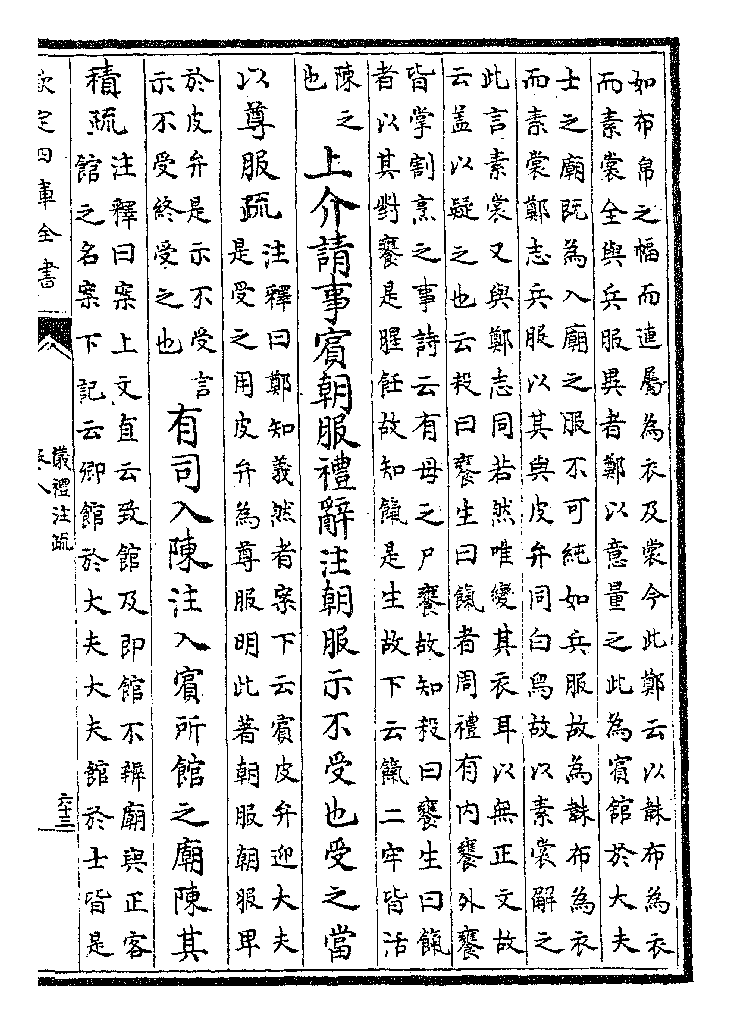 如布帛之幅而連屬為衣及裳今此鄭云以韎布為衣
而素裳全與兵服異者鄭以意量之此為賓館於大夫
士之廟既為入廟之服不可純如兵服故為韎布為衣
而素裳鄭志兵服以其與皮弁同白舄故以素裳解之
此言素裳又與鄭志同若然唯變其衣耳以無正文故
云盖以疑之也云殺曰饔生曰餼者周禮有内饔外饔
皆掌割烹之事詩云有母之尸饔故知殺曰饔生曰餼
者以其對饔是腥飪故知餼是生故下云餼二牢皆活
陳之
也
上介請事賓朝服禮辭注朝服示不受也受之當
以尊服疏
注釋曰鄭知義然者案下云賓皮弁迎大夫
是受之用皮弁為尊服明此著朝服朝服卑
於皮弁是示不受言
示不受終受之也
有司入陳注入賓所館之廟陳其
積疏
注釋曰案上文直云致館及即館不辨廟與正客
館之名案下記云卿館於大夫大夫館於士皆是
欽定四庫全書
儀禮注疏
卷八
六十三